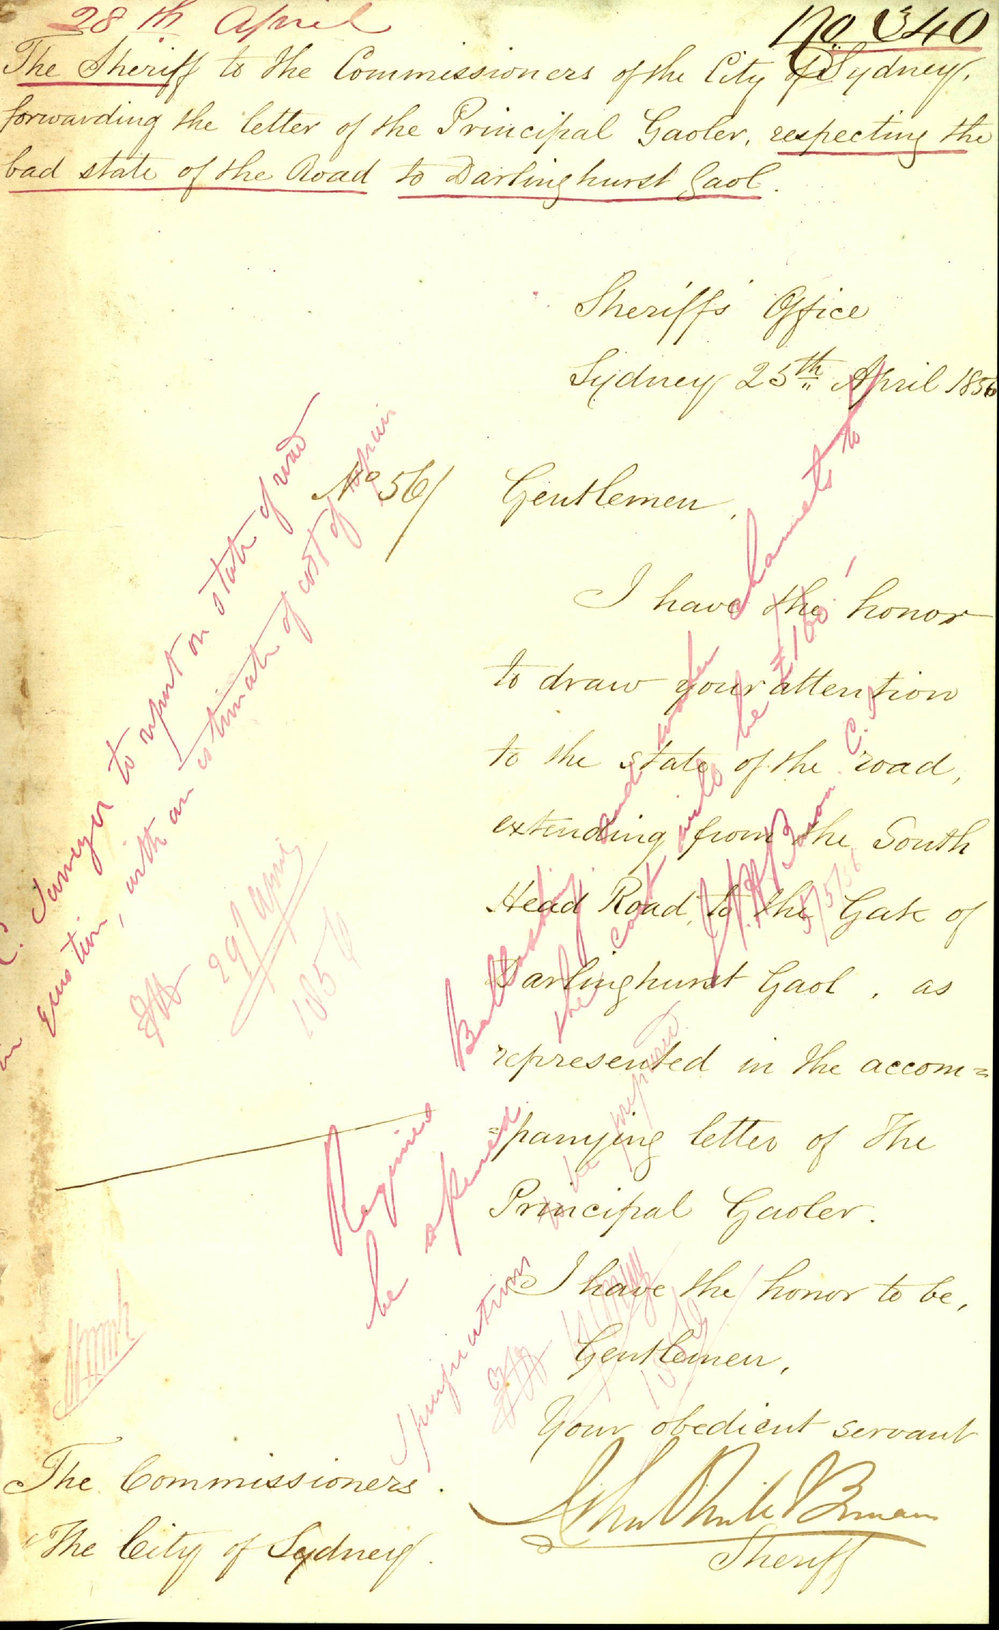 28th April
No 340
The Sheriff to the Commissioners of the City of Sydney,
forwarding the letter of the Principal Gaoler, respecting the
bad state of the Road to Darlinghurst Gaol.
Sheriff's Office
Sydney 25th April 1856
No 56/
Gentlemen,
I have the honor
to draw your attention
to the state of the road,
extending from the South
Head Road, to the Gate of
Darlinghurst Gaol, as
represented in the accom=
=panying letter of the
Principal Gaoler.
I have the honor to be,
Gentlemen,
Your obedient servant
Sheriff
The Commissioners.
The City of Sydney.
C. Surveyor to report on state of road
in question, with an estimate of cost of repair
29/April
1856
Required Ballasting and water channels to
be opened the cost will be £100
5/5/56
Specification to be prepared